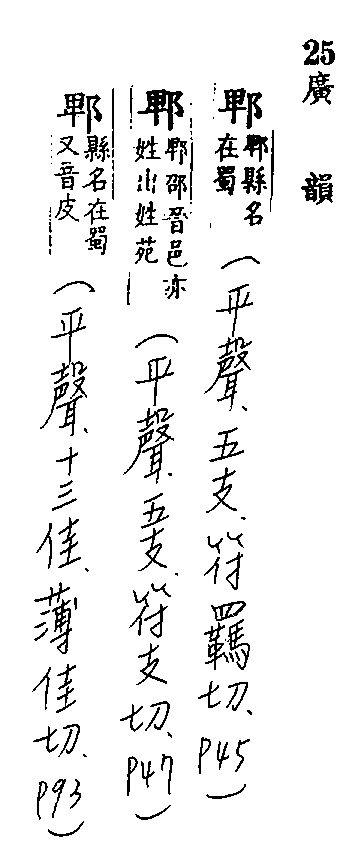 25
廣韻
郫 郫縣名在蜀（平聲、五支、符羈切、P45）
郫 郫邵晉邑亦姓出姓苑（平聲、五支、符支切、P47）
郫 縣名在蜀又音皮（平聲、十三佳、薄佳切、P93）